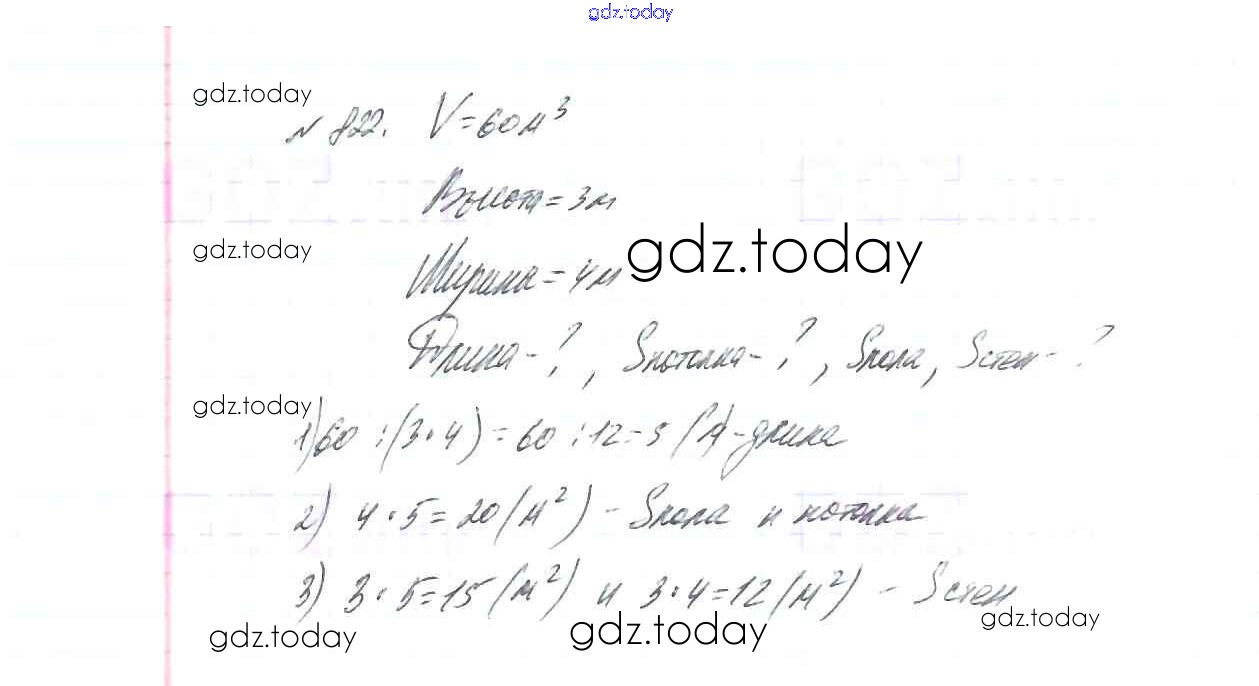 gdz.today
gdz.today
№ 822. V=60м³
Высота=3м
gdz.today
gdz.today
Ширина=4м
Длина-?, Sпотолка-?, Sпола, Sстен-?
gdz.today
1) 60:(3·4)=60:12=5(м)-длина
2) 4·5=20(м²)-Sпола и потолка
3) 3·5=15(м²) и 3·4=12(м²)-Sстен
gdz.today
gdz.today
gdz.today